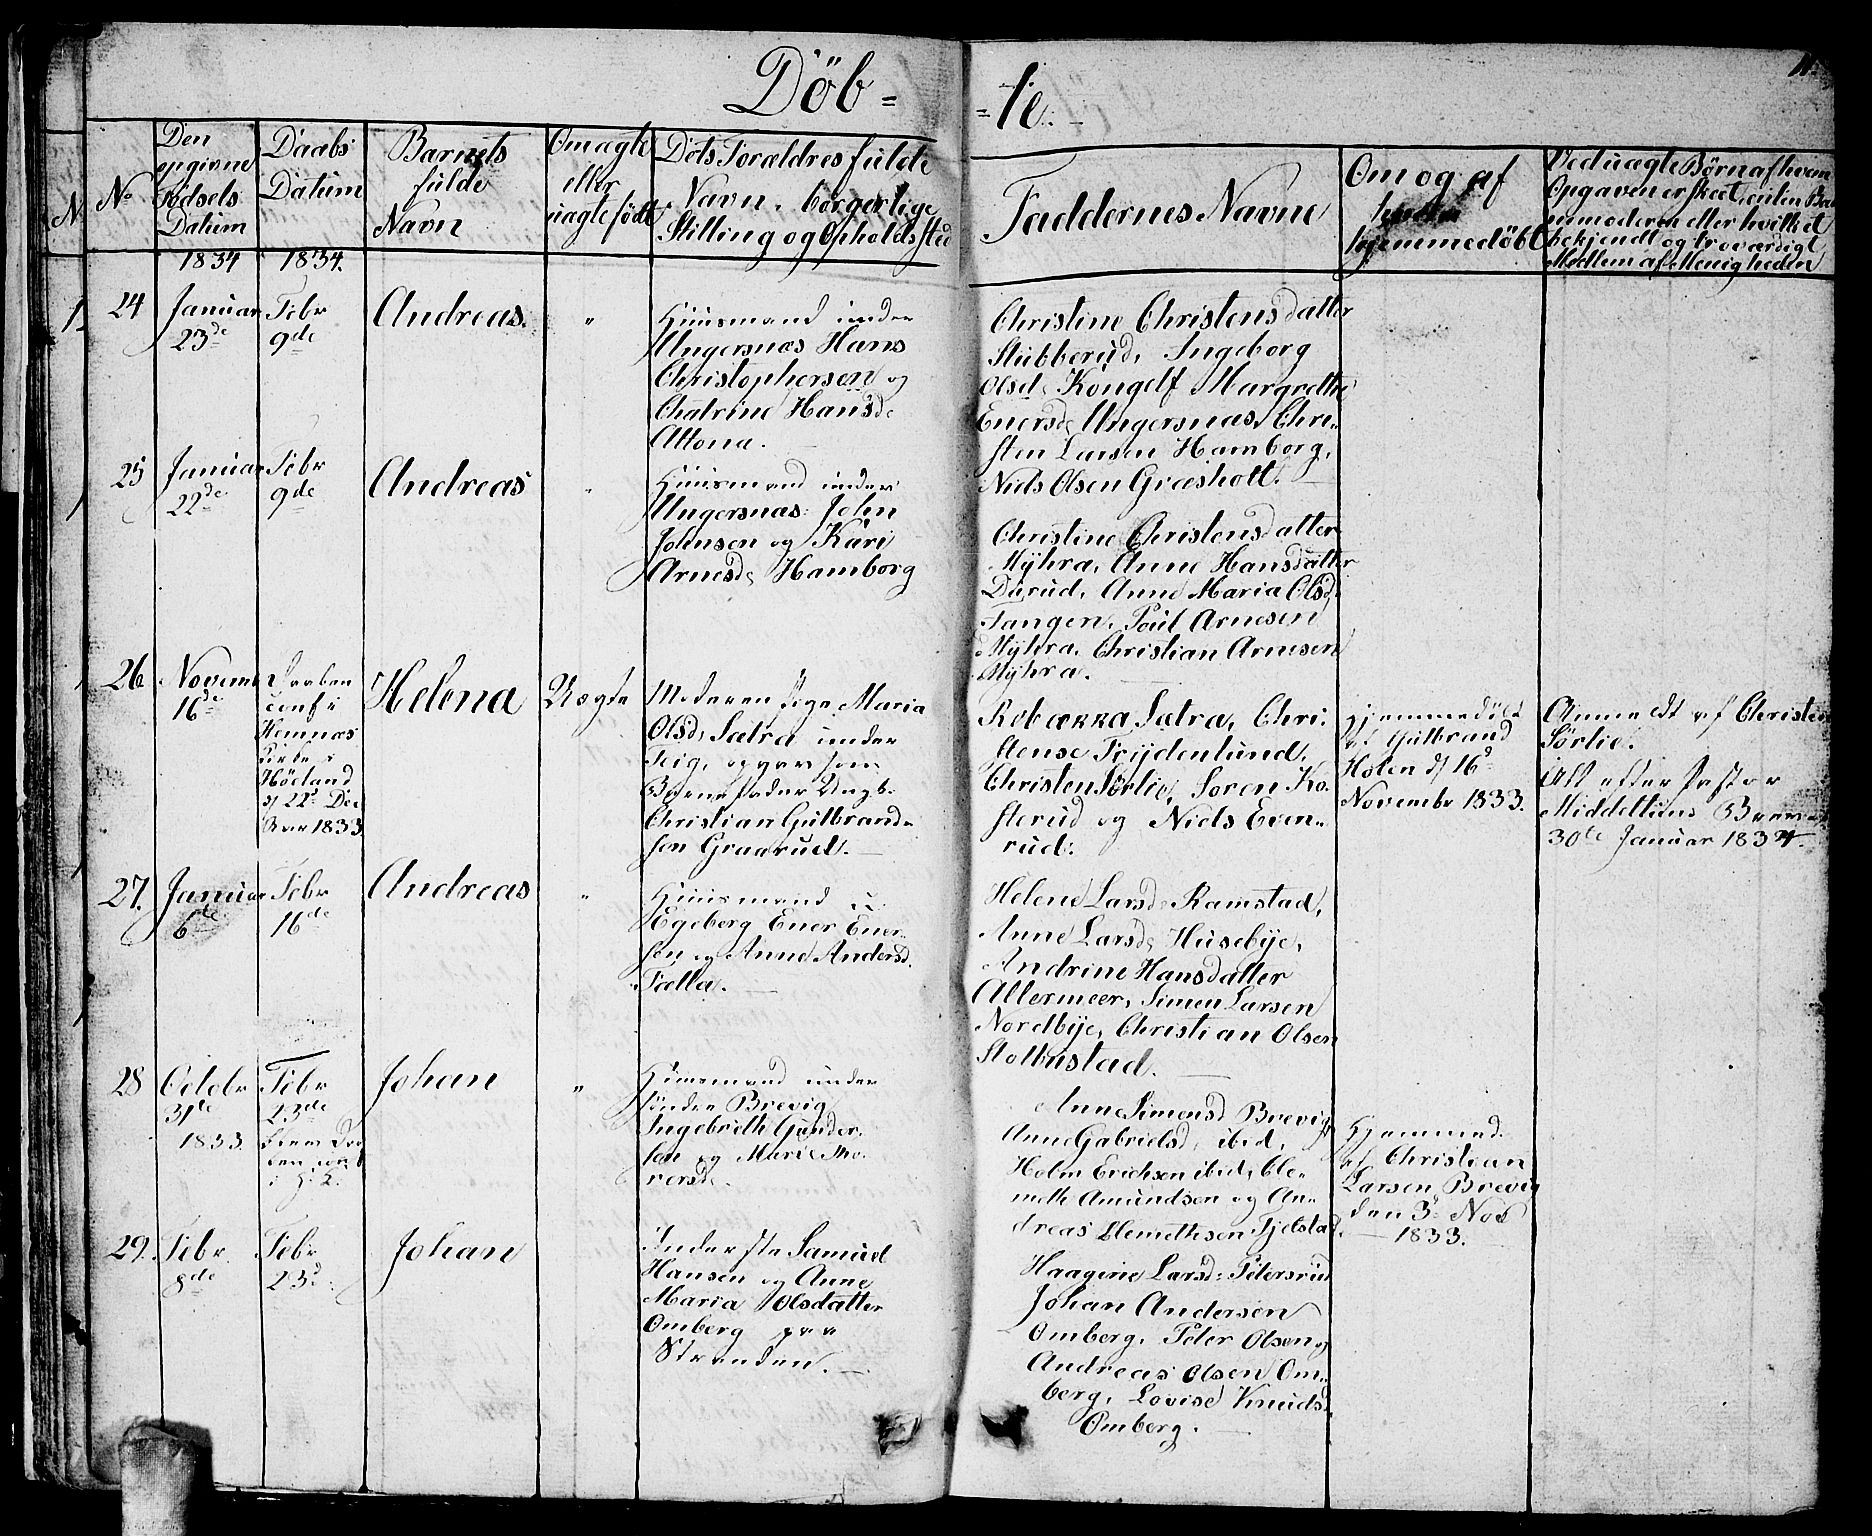 Döb=
=te.
11.
N.
No
Den
opgivne
Fødsels
Datum
Daabs
Datum
Barnets
fulde
Navn
Om ægte
eller
uægte født
Dets Forældres fulde
Navn, borgerlige
Stilling og Opholdssted
Faddernes Navne
Om og af
hvem
hjemmedöbt
Ved uægte Børn af hvem
Opgaven er skeet, enten Bar
nemoderen eller hvilket
bekjendt og troværdigt
Medlem af Menigheden
1834
1834.
24
Januar
23de
Febr
9de
Andreas.
"
Huusmand under
Ungersnæs Hans
Christophersen og
Chatrine Hansd.
Altona.
Christine Christensdatter
Stubberud, Ingeborg
Olsd. Kongelf Margrethe
Enersd. Ungersnæs, Chri-
sten Larsen Hamborg,
Niels Olsen Græsholt.
25
Januar
22de
Febr
9de
Andreas
"
Huusmand under
Ungersnæs: John
Johnsen og Kari
Arnesd. Hamborg
Christine Christensdatter
Myhra, Anne Hansdatter
Durud, Anne Maria Olsd.
Tangen, Poul Arnesen
Myhra, Christian Arnesen
Myhra.
26
Novembr
16de
Daaben
conf. i
Hemnæs
Kirke i
Höeland
d. 22de Dec
1833
Helena
Uægte
Moderen Pige Maria
Olsd. Sætra under
Teig, opgav som
Barnefader Ungk.
Christian Gulbrand-
sen Graarud.
Robækka Sætra, Chri-
stense Frydenlund,
Christen Sørlie, Soren Ko-
sterud og Niels Even-
rud.
Hjemmedöbt
af Gulbrand
Holen d. 16de
Novembr 1833.
Anmeldt af Christen
Sørlie.
Alt efter Pastor
Middeltuns
30te Januar 1834.
27.
Januar
6de
Febr
16de
Andreas
"
Huusmand u.
Egeberg Ener Ener-
sen og Anne Andersd.
Fælla.
Helene Larsd. Ramstad,
Anne Larsd. Husebye,
Andrine Hansdatter
Allermeer, Simen Larsen
Nordbye, Christian Olsen
Stolbustad.
28
Octobr
31te
1833.
Febr
23de
Johan
"
Huusmand under
söndre Brevig
Ingebreth Gunder-
sen og Marie Tho-
rersd.
Anne Simensd Brevig,
Anne Gabrielsd. ibid,
Holm Erichsen ibid, Cle-
meth Amundsen og An-
dreas Clemethsen Fjelstad.
Hjemmed.
af Christian
Larsen Brevig
den 3de Nov
1833.
29.
Febr.
8de
Febr
23d.
Johan
Inderste Samuel
Hansen og Anne
Maria Olsdatter
Omberg paa
Stranden.
Haagine Larsd: Petersrud
Johan Andersen
Omberg, Peter Olsen og
Andreas Olsen Om-
berg, Lovise Knuds.
Omberg.